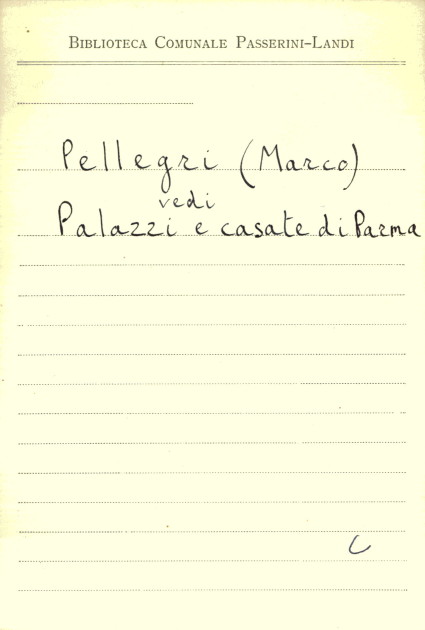 Biblioteca Comunale Passerini-Landi
Pellegri (Marco)
vedi
Palazzi e casate di Parma
C